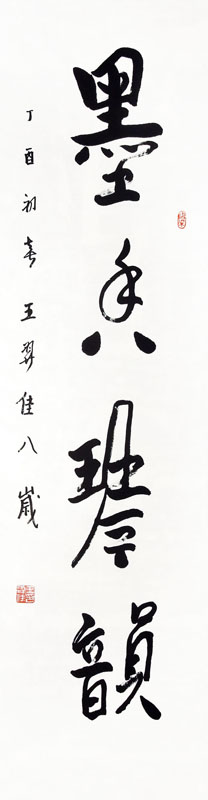 墨香琴韻
丁酉初春王羿佳八歲